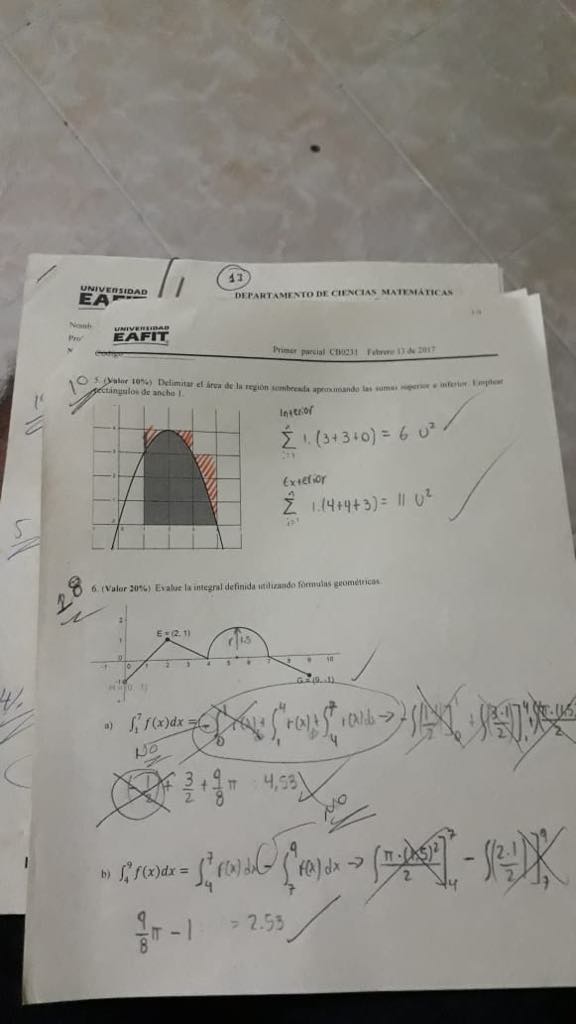 13
UNIVERSIDAD
EAFIT
DEPARTAMENTO DE CIENCIAS MATEMÁTICAS
UNIVERSIDAD
EAFIT
Código
Primer parcial CB0231 Febrero 13 de 2017
10 5. (Valor 10%) Delimitar el área de la región sombreada aproximando las sumas superior e inferior. Emplear
rectángulos de ancho 1.
Interior
Σ 1.(3+3+0) = 6 U²
Exterior
Σ 1.(4+4+3) = 11 U²
5
6. (Valor 20%) Evalue la integral definida utilizando fórmulas geométricas.
E = (2, 1)
r 1.5
-1 0 1 2 3 4 5 6 7 8 9 10
G = (9, -1)
a) ∫₁⁷ f(x)dx =
NO
+ 3/2 + 9/8 π = 4,53
NO
b) ∫₄⁹ f(x)dx = ∫₄⁷ f(x)dx - ∫₇⁹ f(x)dx → ∫(π·(1.5)²/2)]₄⁷ - ∫(2·1/2)]₇⁹
9/8 π - 1 = 2.53